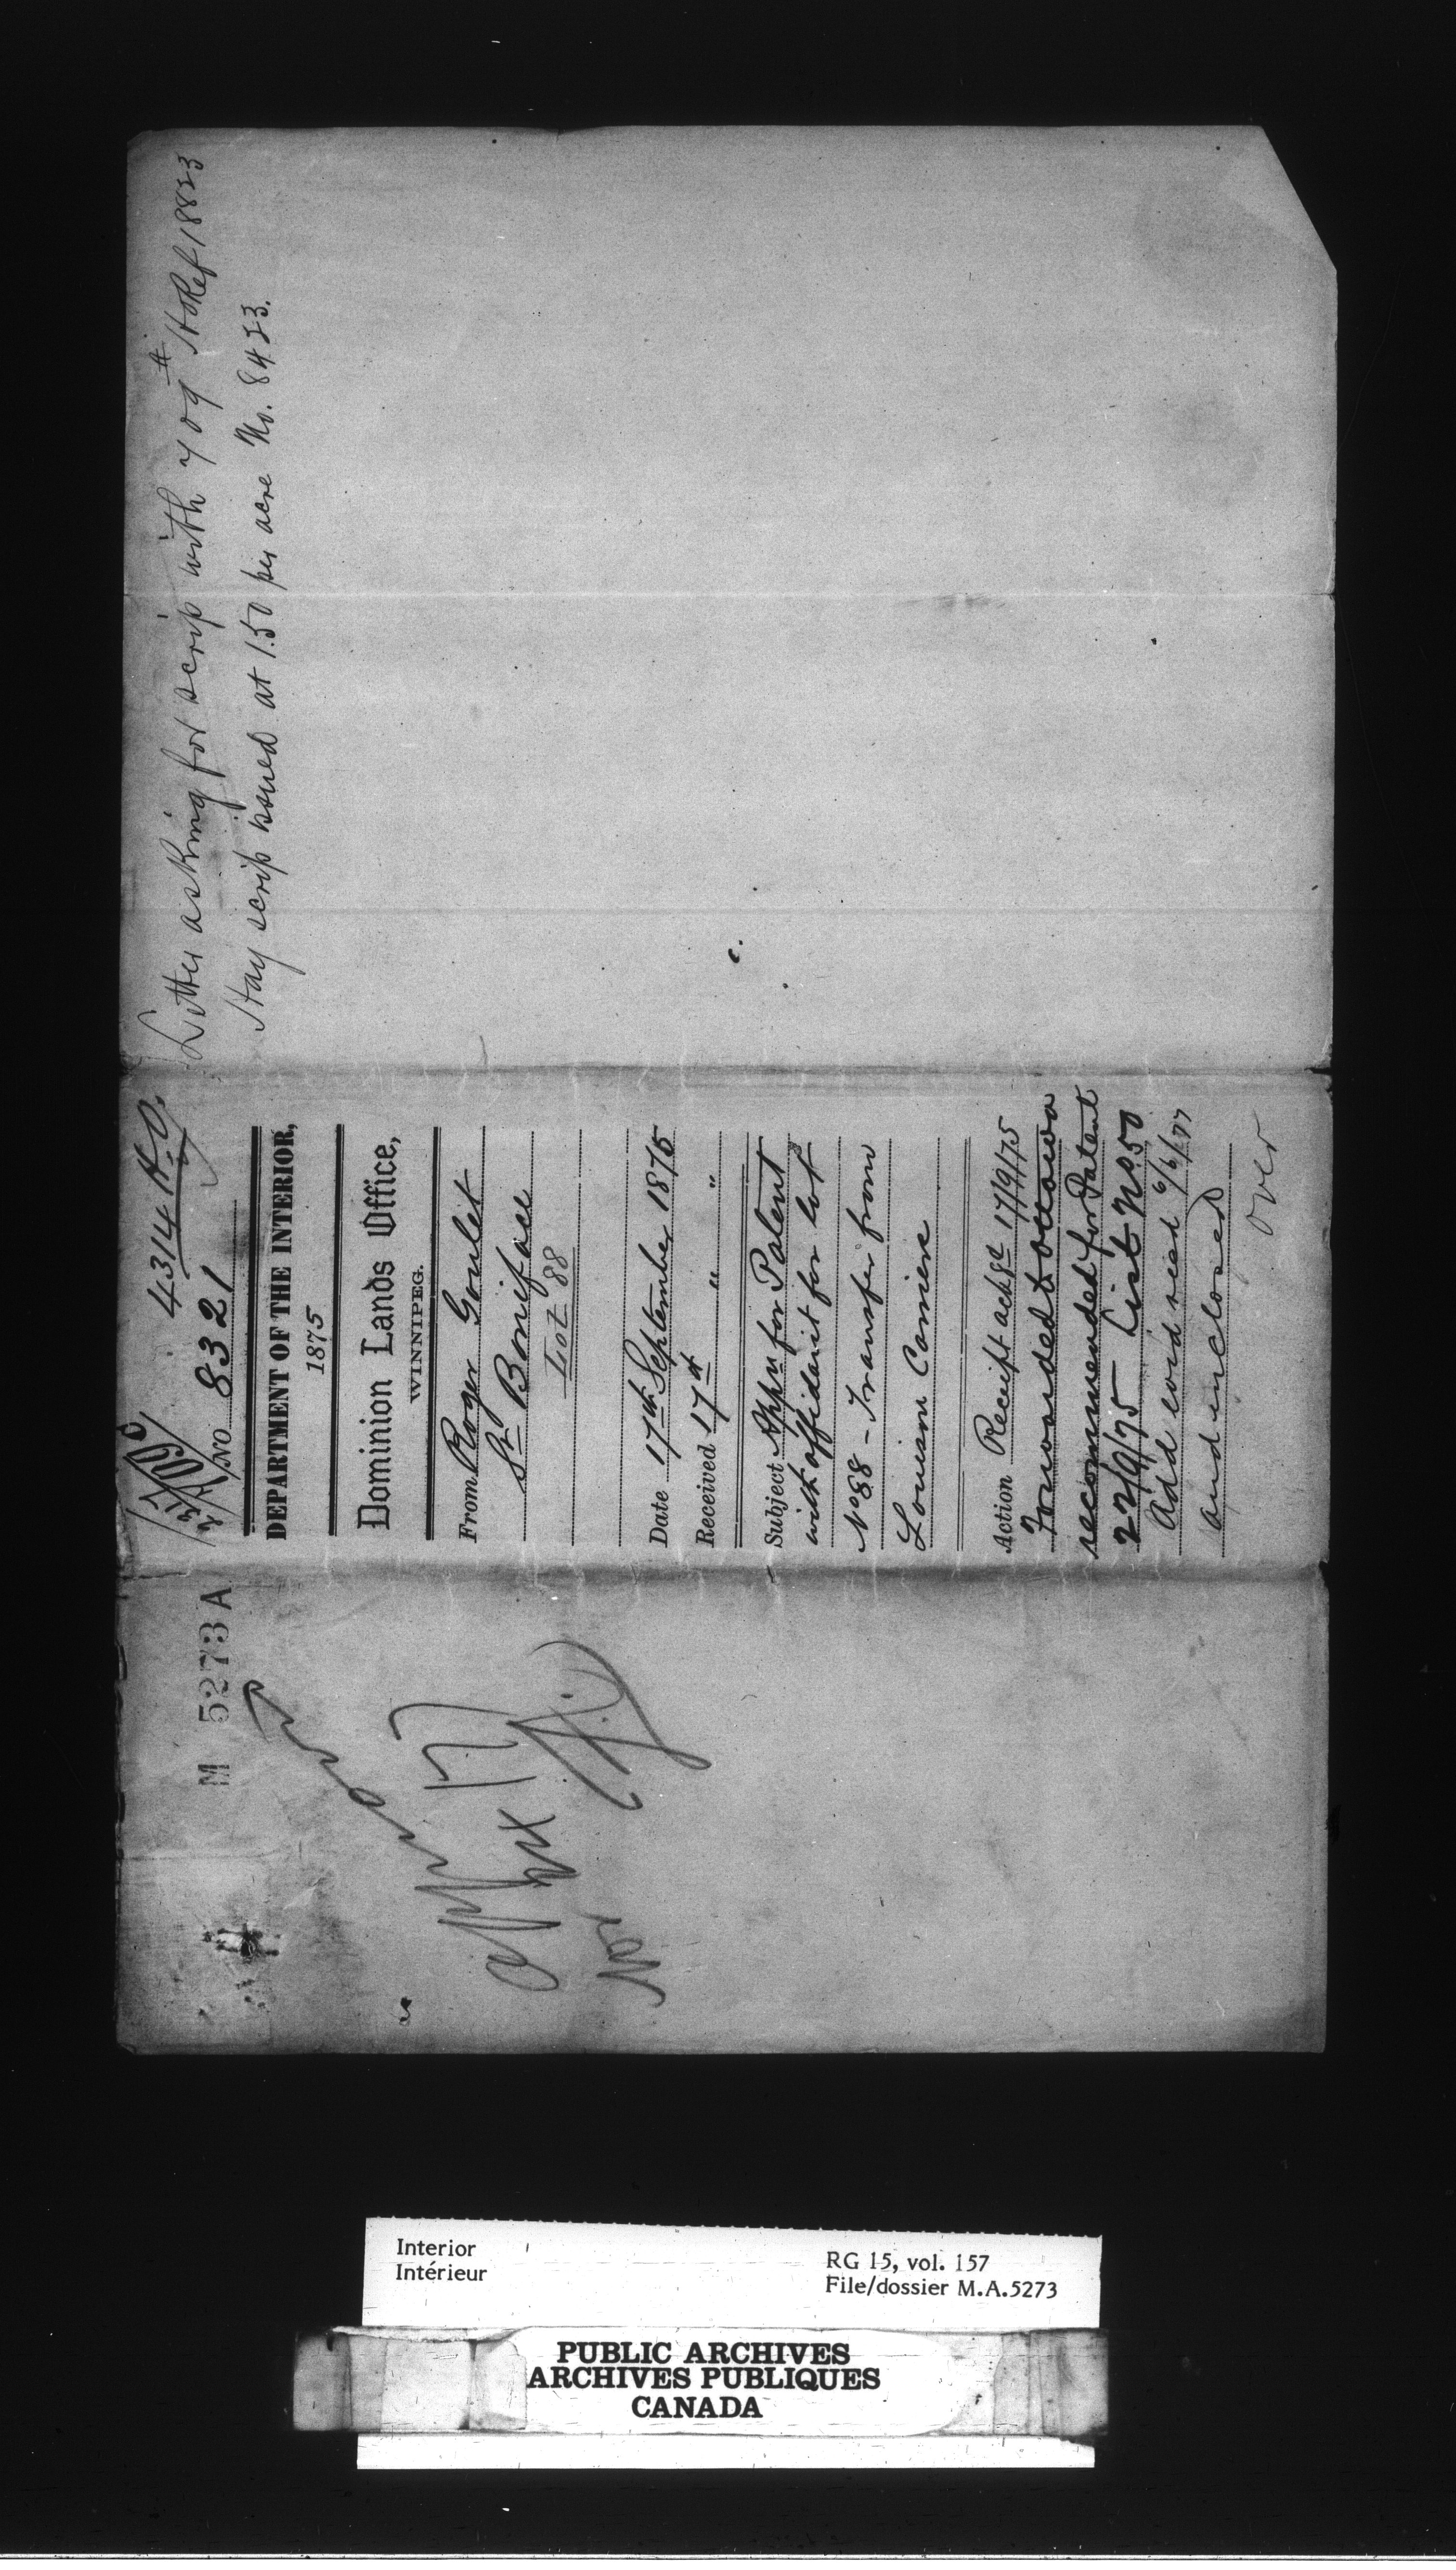 Letter asking for scrip with 709
Hay scrip issued at 1.50 per acre No. 8423.
4314 H.O.
No 8321
DEPARTMENT OF THE INTERIOR,
1875
Dominion Lands Office,
WINNIPEG.
From Roger Goulet
St Boniface
Lot 88
Date 17th September 1875
Received 17th " "
Subject Appn for Patent
with affidavit for lot
No 88 - Transfer from
Louison Carriere
Action Receipt ackgd 17/9/75
Forwarded to Ottawa
recommended for Patent
22/9/75 - List No. 50
Add evid recd 6/6/77
and inclosed
over
M 5273 A
Interior
Intérieur
RG 15, vol. 157
File/dossier M.A.5273
PUBLIC ARCHIVES
ARCHIVES PUBLIQUES
CANADA